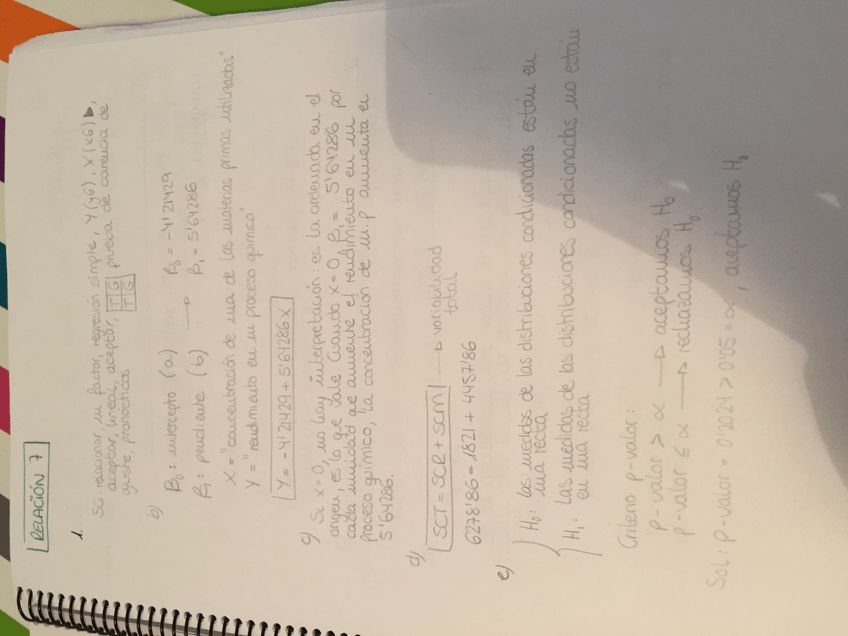 RELACIÓN 7
1.
SG relacionar, un factor, regresión simple, Y(y6), X(x6) ▶,
aceptar, lineal, aceptar, T G T G prueba de carencia de
ajuste, pronósticos
b)
β₀: intercepto (a) β₀ = -4'21429
β₁: pendiente (b) → β₁ = 5'64286
X = "concentración de una de las materias primas utilizadas"
Y = "rendimiento en un proceso químico"
Y = -4'21429 + 5'64286 X
c) Si x=0, no hay interpretación: es la ordenada en el
origen, es lo que vale cuando x=0, β₁ = 5'64286 por
cada unidad que aumente el rendimiento en un
proceso químico, la concentración de m.p aumenta en
5'64286.
d)
SCT = SCR + SCM → variabilidad
total
6278'86 = 1821 + 4457'86
e)
H₀: las medias de las distribuciones condicionadas están en
una recta
H₁: las medidas de las distribuciones condicionadas no están
en una recta
Criterio p-valor:
p-valor > α → aceptamos H₀
p-valor ≤ α → rechazamos H₀
Sol: p-valor = 0'2024 > 0'05 = α, aceptamos H₀